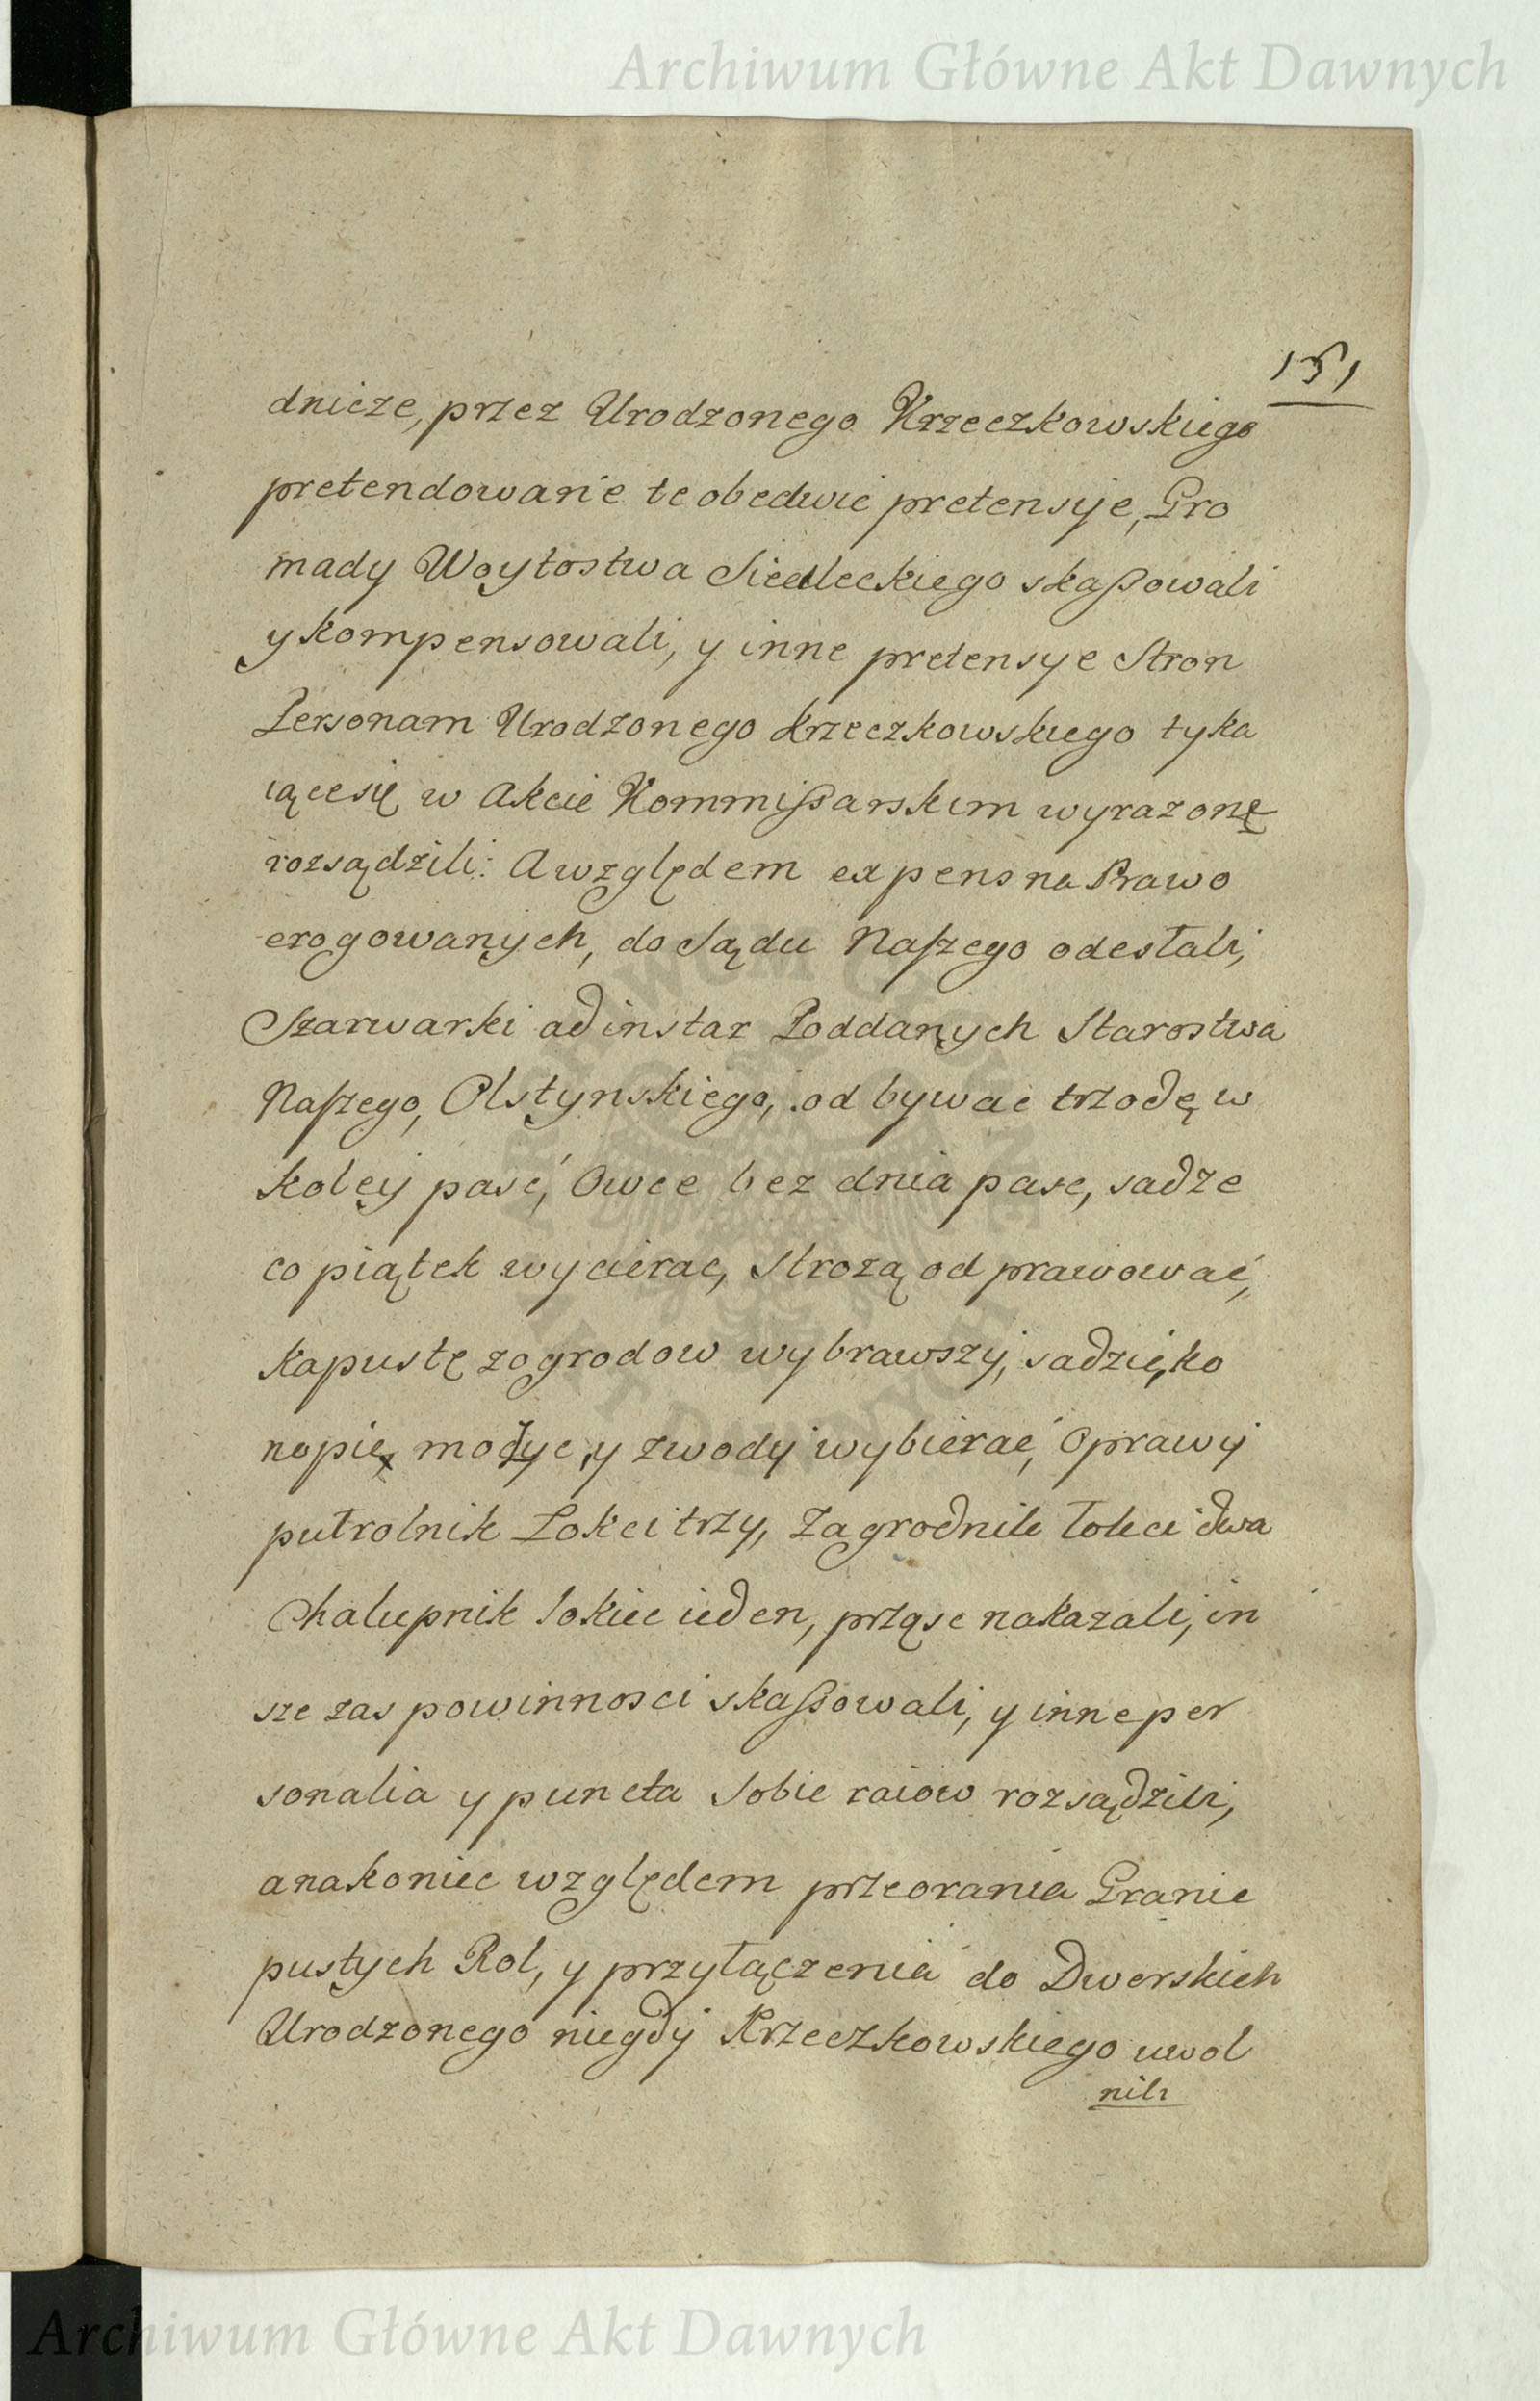 Archiwum Główne Akt Dawnych
151
dnicze, przez Urodzonego Krzeczkowskiego
pretendowane te obedwie pretensye, Gro
mady Woytostwa Siedleckiego skaßowali
y kompensowali, y inne pretensye Stron
Personam Urodzonego Krzeczkowskiego tyka
iącesię w Akcie Kommißarskim wyrazonę
rozsądzili: A względem expens na Prawo
erogowanych, do Sądu Naszego odesłali,
Szarwarki ad instar Poddanych Starostwa
Naszego, Olstynskiego, odbywac trzodę w
koley pasć, Owce bez dnia pasc, sadze
co piątek wycierac, Strozą odprawować,
kapustę zogrodow wybrawszy, sadzię, ko
nopie moczyc, y zwody wybierać, Oprawy
pułrolnik Łokci trzy, Zagrodnik łokci dwa
Chalupnik łokiec ieden, prząsc nakazali, in
sze zas powinnosci skaßowali, y inne per
sonalia y puncta Sobie raiow rozsądzili,
anakoniec względem przeorania Granic
pustych Rol, y przyłączenia do Dworskich
Urodzonego niegdy Krzeczkowskiego uwol
nili
Archiwum Główne Akt Dawnych